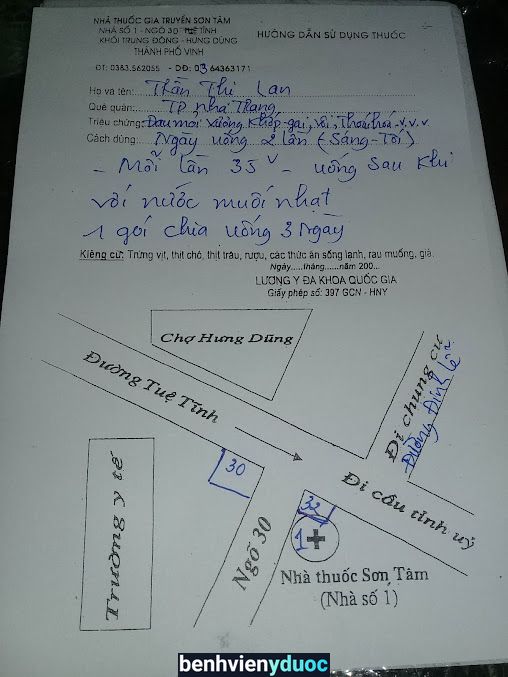 NHÀ THUỐC GIA TRUYỀN SƠN TÂM
NHÀ SỐ 1 - NGÕ 30 TUỆ TĨNH
KHỐI TRUNG ĐÔNG - HƯNG DŨNG
THÀNH PHỐ VINH
HƯỚNG DẪN SỬ DỤNG THUỐC
ĐT: 0383.562055 - DĐ: 0364363171
Họ và tên: Trần Thị Lan
Quê quán: TP Nha Trang
Triệu chứng: Đau mỏi xương khớp - gai, vôi, Thoái hóa v.v.v
Cách dùng: Ngày uống 2 lần (Sáng - Tối)
- Mỗi lần 35v - uống sau khi
với nước muối nhạt
1 gói chia uống 3 Ngày
Kiêng cữ: Trứng vịt, thịt chó, thịt trâu, rượu, các thức ăn sống lạnh, rau muống, giá.
Ngày.....tháng......năm 200...
LƯƠNG Y ĐA KHOA QUỐC GIA
Giấy phép số: 397 GCN - HNY
Chợ Hưng Dũng
Đường Tuệ Tĩnh
Đi chung cư
Đường Đinh Lễ
Trường y tế
30
Ngõ 30
32
1
Đi cầu tỉnh uỷ
Nhà thuốc Sơn Tâm
(Nhà số 1)
benhvienyduoc